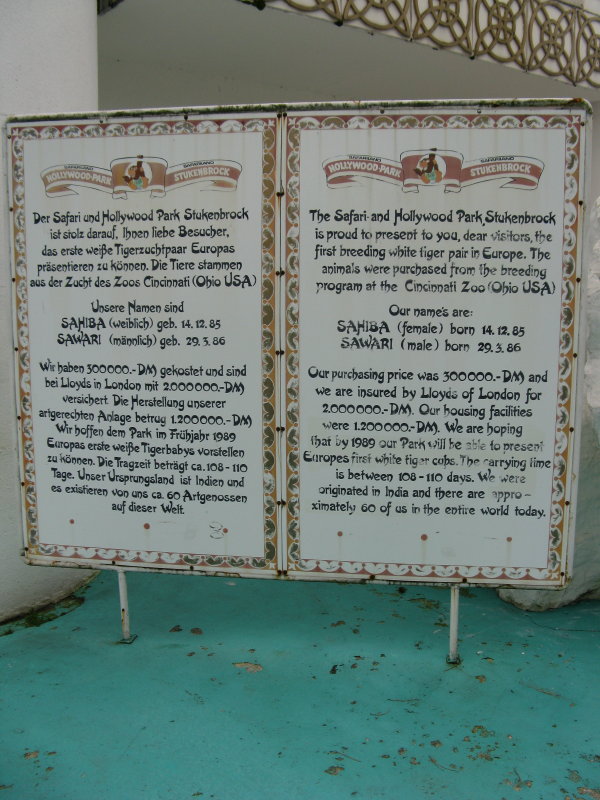 SAFARILAND SAFARILAND
HOLLYWOOD-PARK STUKENBROCK
Der Safari und Hollywood Park Stukenbrock
ist stolz darauf, Ihnen liebe Besucher,
das erste weiße Tigerzuchtpaar Europas
präsentieren zu können. Die Tiere stammen
aus der Zucht des Zoos Cincinnati (Ohio USA)
Unsere Namen sind
SAHIBA (weiblich) geb. 14. 12. 85
SAWARI (männlich) geb. 29. 3. 86
Wir haben 300000.-DM) gekostet und sind
bei Lloyds in London mit 2.000000.-DM)
versichert. Die Herstellung unserer
artgerechten Anlage betrug 1.200000.-DM)
Wir hoffen dem Park im Frühjahr 1989
Europas erste weiße Tigerbabys vorstellen
zu können. Die Tragzeit beträgt ca. 108-110
Tage. Unser Ursprungsland ist Indien und
es existieren von uns ca. 60 Artgenossen
auf dieser Welt.
SAFARILAND SAFARILAND
HOLLYWOOD-PARK STUKENBROCK
The Safari and Hollywood Park Stukenbrock
is proud to present to you, dear visitors, the
first breeding white tiger pair in Europe. The
animals were purchased from the breeding
program at the Cincinnati Zoo (Ohio USA)
Our name's are:
SAHIBA (female) born 14. 12. 85
SAWARI (male) born 29. 3. 86
Our purchasing price was 300000.-DM) and
we are insured by Lloyds of London for
2.000000.-DM). Our housing facilities
were 1.200000.-DM). We are hoping
that by 1989 our Park will be able to present
Europes first white tiger cubs. The carrying time
is between 108-110 days. We were
originated in India and there are appro-
ximately 60 of us in the entire world today.